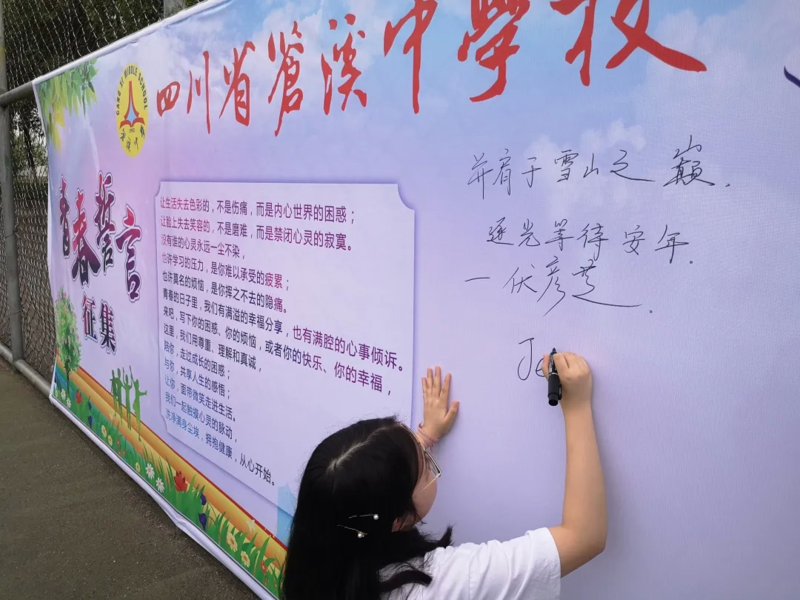 四川省苍溪中学校
CANGXI MIDDLE SCHOOL
青春誓言
征集
让生活失去色彩的，不是伤痛，而是内心世界的困惑；
让脸上失去笑容的，不是磨难，而是禁闭心灵的寂寞。
没有谁的心灵永远一尘不染，
也许学习的压力，是你难以承受的疲累；
也许莫名的烦恼，是你挥之不去的隐痛。
青春的日子里，我们有满溢的幸福分享，也有满腔的心事倾诉。
来吧，写下你的困惑、你的烦恼，或者你的快乐、你的幸福，
这里，我们用尊重、理解和真诚，
陪你，走过成长的困惑；
与你，共享人生的感悟；
让你，面带微笑走进生活。
我们一起触摸心灵的脉动，
洗净满身尘埃，拥抱健康，从心开始。
并肩于雪山之巅．
逐光等待安年．
一伏彦芝．